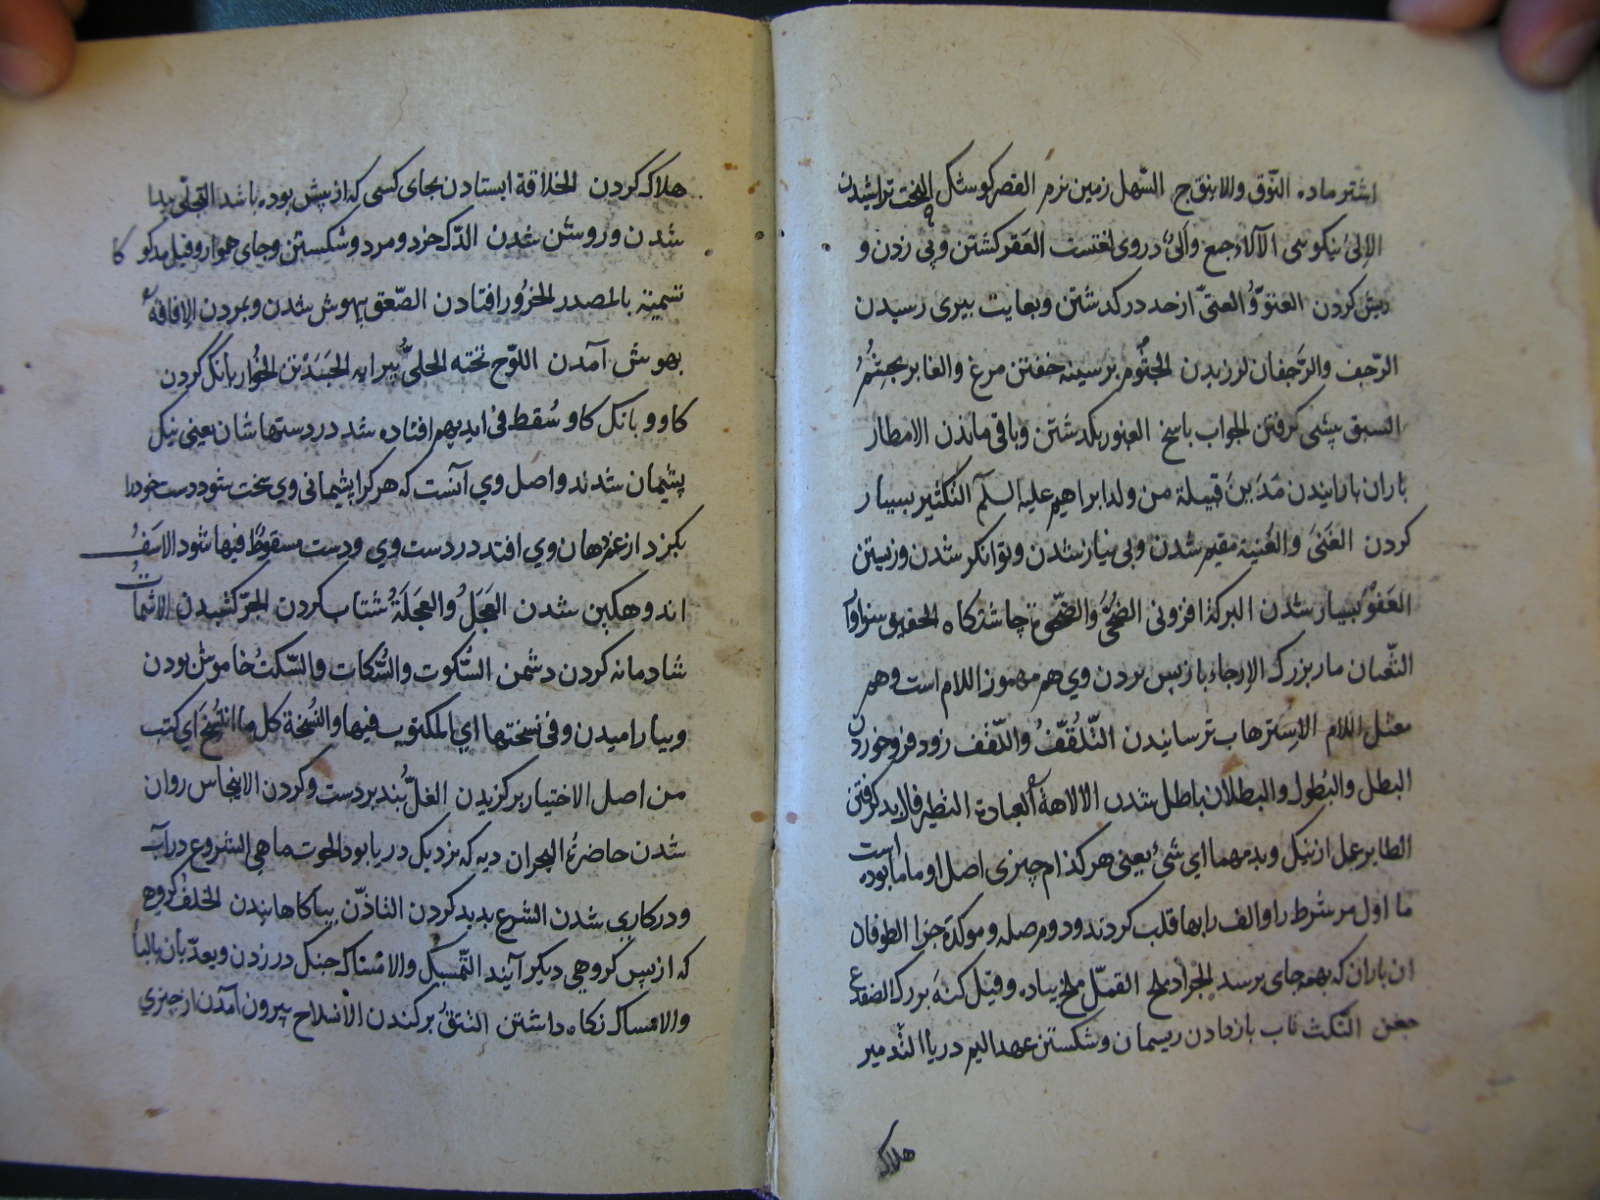 اشتر ماده النّوق والاینق ج السّهل زمین نرم القصر کوشک النحت تراشیدن
الاِلیٰ نیکویی الآلاء جمع واَلیٰ در وی لغتست العَقر کشتن و پی زدن و
ریش کردن العتوّ والعتیّ از حد درکدشتن وبغایت پیری رسیدن
الرّجف والرّجفان لرزیدن الجثوم بر سینه خفتن مرغ والغابر یجثُمُ
السبق پیشی کرفتن الجواب پاسخ الغبور بکدشتن وباقی ماندن الامطار
باران بارانیدن مَدیَن قبیلة من ولد ابراهیم علیه السلم التکثیر بسیار
کردن الغنیٰ والغُنیة مقیم شدن وبی نیاز شدن وتوانکر شدن وزیستن
العَفوُ بسیار شدن البرکة افزونی الضُّحیٰ والضّحیٰ چاشتکاه الحقیق سزاوار
الثّعبان مار بزرک الاِرجاء بازپس بردن وی هم مهموز اللام است وهم
معتل اللام الاِسترهاب ترسانیدن التّلقّفُ واللّقف زود فروخوردن
البطل والبُطول والبطلان باطل شدن الالاهة العبادة التطیر فال بد کرفتن
الطایر عمل از نیک وبد مهما ای شیء یعنی هر کدام چیزی اصل او ماما بوده است
ما اول مر شرط را والف را بها قلب کردند ودوم صله و موکده جزا الطوفان
ان باران که بهمه جای برسد الجراد ملخ القمّل ملخ پیاده وقیل کنهٔ بزرک الضفدع
جغز النّکث تاب باز دادن ریسمان وشکستن عهد الیم دریا التدمیر
هلاک
هلاک کردن الخلافة ایستادن بجای کسی که از پیش بوده باشد التجلّی پیدا
شدن وروشن شدن الدّک خرد ومرد وشکستن وجای هموار وقیل مدکوکا
تسمیة بالمصدر الخرُور افتادن الصّعق بیهوش شدن وبمردن الاِفاقة
بهوش آمدن اللوّح تخته الحلیّ پیرایه الجَسَد تن الخُوار بانک کردن
کاو و بانک کاو سُقط فی ایدیهم افتاده شد در دستهاشان یعنی نیک
پشیمان شدند واصل وی آنست که هرکرا پشیمانی وی سخت شود دست خود را
بکزد از غم دهان وی افتد در دست وی ودست مسقوط فیها شود الاسَفُ
اندوهکین شدن العَجَلُ والعجَلَةُ شتاب کردن الجرّ کشیدن الاشمات
شادمانه کردن دشمن السُّکوت والسُّکات والسّکتُ خاموش بودن
وبیارامیدن وفی نسختها ای المکتوب فیها والنُسخة کل ما انتُسخ ای کتب
من اصل الاختیار برکزیدن الغلّ بند بر دست وکردن الانبجاس روان
شدن حاضرة البحران دیه که نزدیک دریا بود الحوت ماهی الشروع در آب
ودر کاری شدن الشرع پدید کردن التاذّن بیاکاهانیدن الخلف کروهی
که از پس کروهی دیکر آیند التّمسیک والامتساک چنک در زدن ویعدّیان بالباء
والامساک نکاه داشتن النتقُ برکندن الانسلاخ بیرون آمدن از چیزی